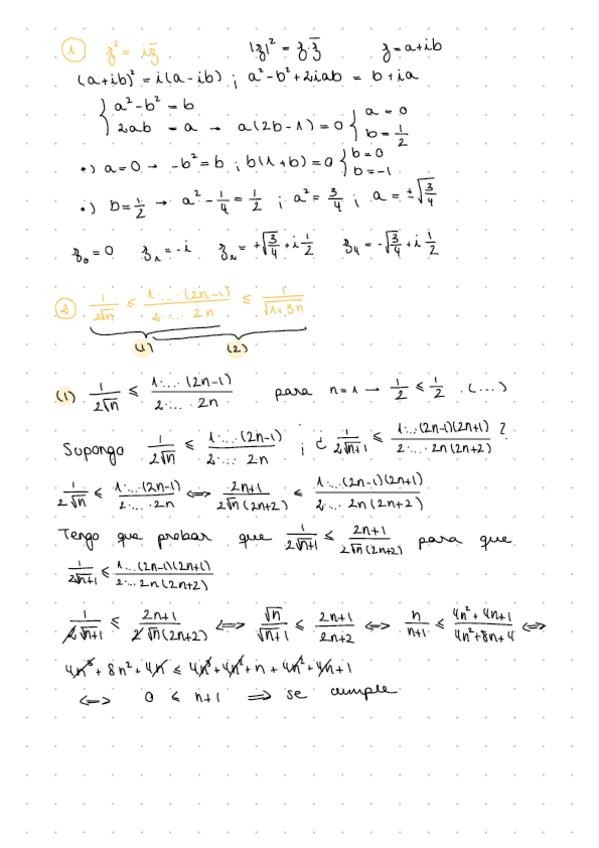 1 z² = i z̄   |z|² = z·z̄   z = a+ib
(a+ib)² = i(a-ib) ; a²-b²+2iab = b+ia
{ a²-b² = b
{ 2ab = a → a(2b-1) = 0 { a = 0 { b = 1/2
•) a=0 → -b² = b ; b(1+b) = 0 { b=0 { b=-1
•) b = 1/2 → a² - 1/4 = 1/2 ; a² = 3/4 ; a = ±√(3/4)
z₀ = 0   z₁ = -i   z₂ = +√(3/4) + i 1/2   z₄ = -√(3/4) + i 1/2
2 1/(2√n) ≤ (1·...·(2n-1))/(2·...·2n) ≤ 1/√(1+3n)
(1) (2)
(1) 1/(2√n) ≤ (1·...·(2n-1))/(2·...·2n)   para n=1 → 1/2 ≤ 1/2 .(...)
Supongo 1/(2√n) ≤ (1·...·(2n-1))/(2·...·2n) ; ¿ 1/(2√(n+1)) ≤ (1·...·(2n-1)(2n+1))/(2·...·2n(2n+2)) ?
1/(2√n) ≤ (1·...·(2n-1))/(2·...·2n) ⟺ (2n+1)/(2√n(2n+2)) ≤ (1·...·(2n-1)(2n+1))/(2·...·2n(2n+2))
Tengo que probar que 1/(2√(n+1)) ≤ (2n+1)/(2√n(2n+2)) para que
1/(2√(n+1)) ≤ (1·...(2n-1)(2n+1))/(2·...2n(2n+2))
1/(2√(n+1)) ≤ (2n+1)/(2√n(2n+2)) ⟺ √n/√(n+1) ≤ (2n+1)/(2n+2) ⟺ n/(n+1) ≤ (4n²+4n+1)/(4n²+8n+4) ⟺
4n³ + 8n² + 4n ≤ 4n³ + 4n² + n + 4n² + 4n + 1
⟺ 0 ≤ n+1 ⟹ se cumple